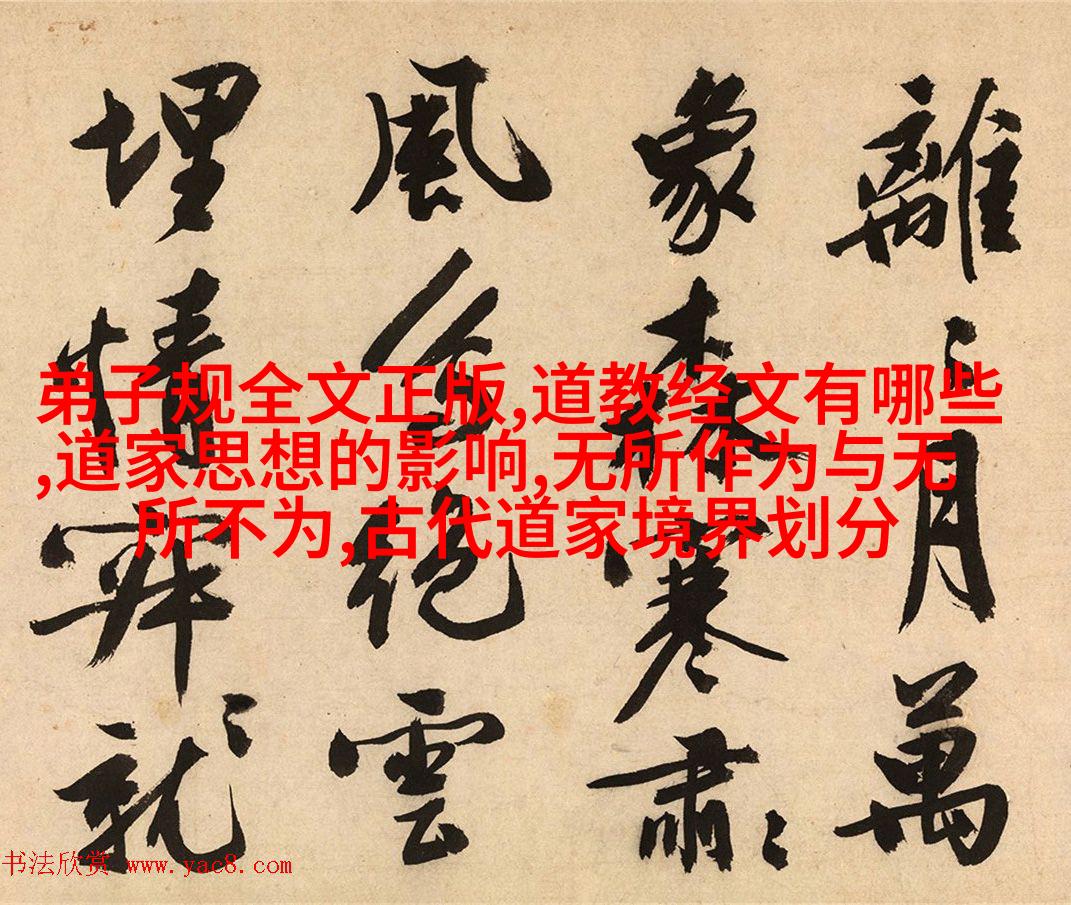 離〻月萬
象森寒肅〻
風絕雲
埋情就
弟子规全文正版,道教经文有哪些
,道家思想的影响,无所作为与无
所不为,古代道家境界划分
书法欣赏 www.yac8.com